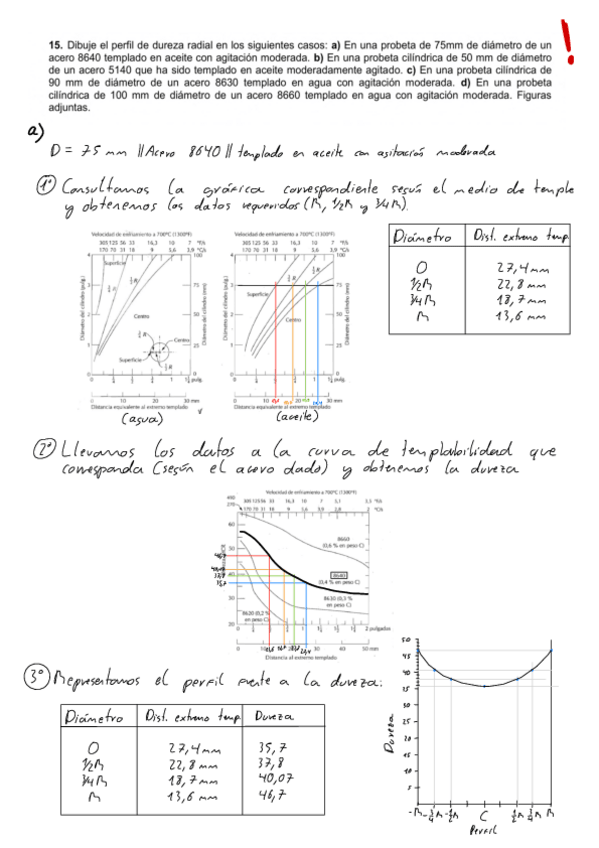 15. Dibuje el perfil de dureza radial en los siguientes casos: a) En una probeta de 75mm de diámetro de un
acero 8640 templado en aceite con agitación moderada. b) En una probeta cilíndrica de 50 mm de diámetro
de un acero 5140 que ha sido templado en aceite moderadamente agitado. c) En una probeta cilíndrica de
90 mm de diámetro de un acero 8630 templado en agua con agitación moderada. d) En una probeta
cilíndrica de 100 mm de diámetro de un acero 8660 templado en agua con agitación moderada. Figuras
adjuntas.
!
a)
D = 75 mm || Acero 8640 || templado en aceite con agitación moderada
1º Consultamos la gráfica correspondiente según el medio de temple
y obtenemos los datos requeridos (R, 1/2R y 3/4R).
Velocidad de enfriamiento a 700ºC (1300ºF)
305 125 56 33 16,3 10 7 ºF/s
170 70 31 18 9 5,6 3,9 ºC/s
Superficie
Centro
Diámetro del cilindro (pulg.)
Diámetro del cilindro (mm)
Distancia equivalente al extremo templado
(agua)
Velocidad de enfriamiento a 700ºC (1300ºF)
305 125 56 33 16,3 10 7 ºF/s
170 70 31 18 9 5,6 3,9 ºC/s
Superficie
Centro
Diámetro del cilindro (pulg.)
Diámetro del cilindro (mm)
Distancia equivalente al extremo templado
(aceite)
Diámetro Dist. extremo temp.
0 27,4mm
1/2R 22,8 mm
3/4R 18,7mm
R 13,6 mm
2º Llevamos los datos a la curva de templabilidad que
corresponda (según el acero dado) y obtenemos la dureza
Velocidad de enfriamiento a 700ºC (1300ºF)
8660
(0,6 % en peso C)
8640
(0,4 % en peso C)
8630 (0,3 %
en peso C)
8620 (0,2 %
en peso C)
2 pulgadas
0 10 30 40 50 mm
Distancia al extremo templado
3º Representamos el perfil frente a la dureza:
Diámetro Dist. extremo temp. Dureza
0 27,4 mm 35,7
1/2R 22,8 mm 37,8
3/4R 18,7 mm 40,07
R 13,6 mm 46,7
Dureza
50
45
40
35
30
25
20
15
10
5
-R -3/4R -1/2R C 1/2R 3/4R R
Perfil